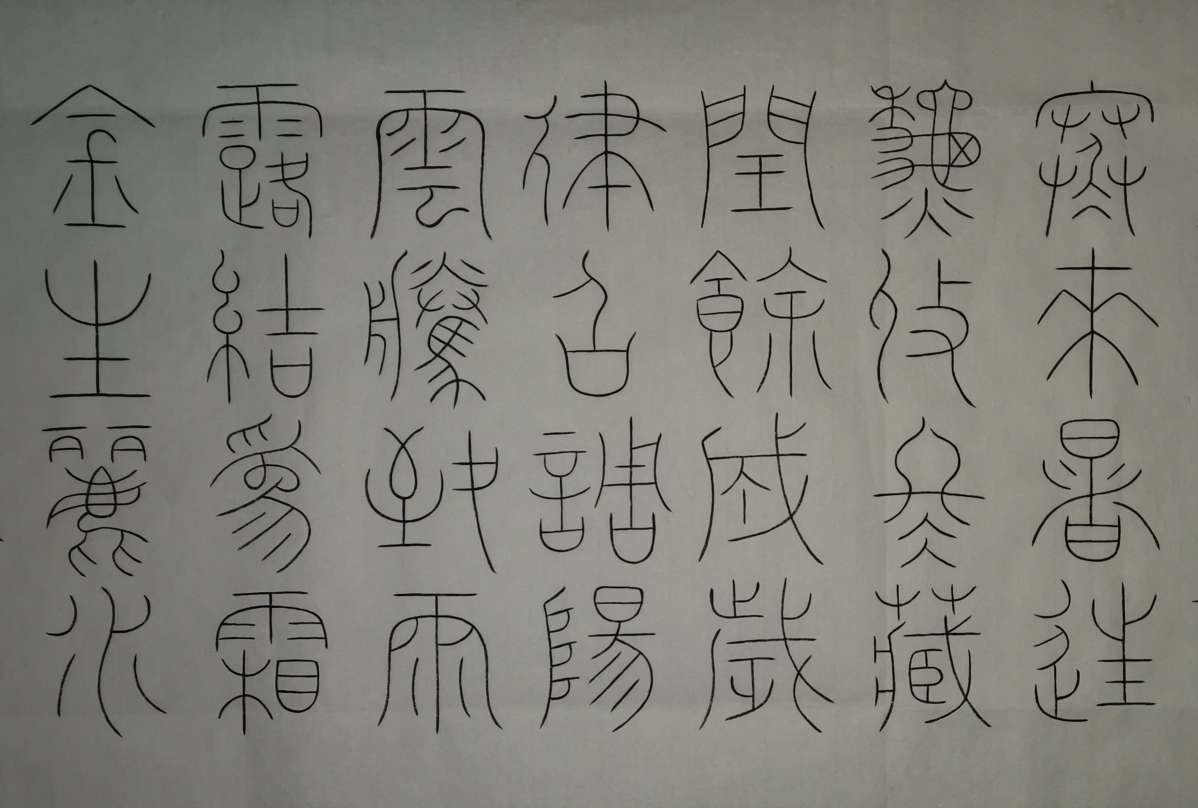 寒來暑往
秋收冬藏
閏餘成歲
律召調陽
雲騰致雨
露結爲霜
金生麗水